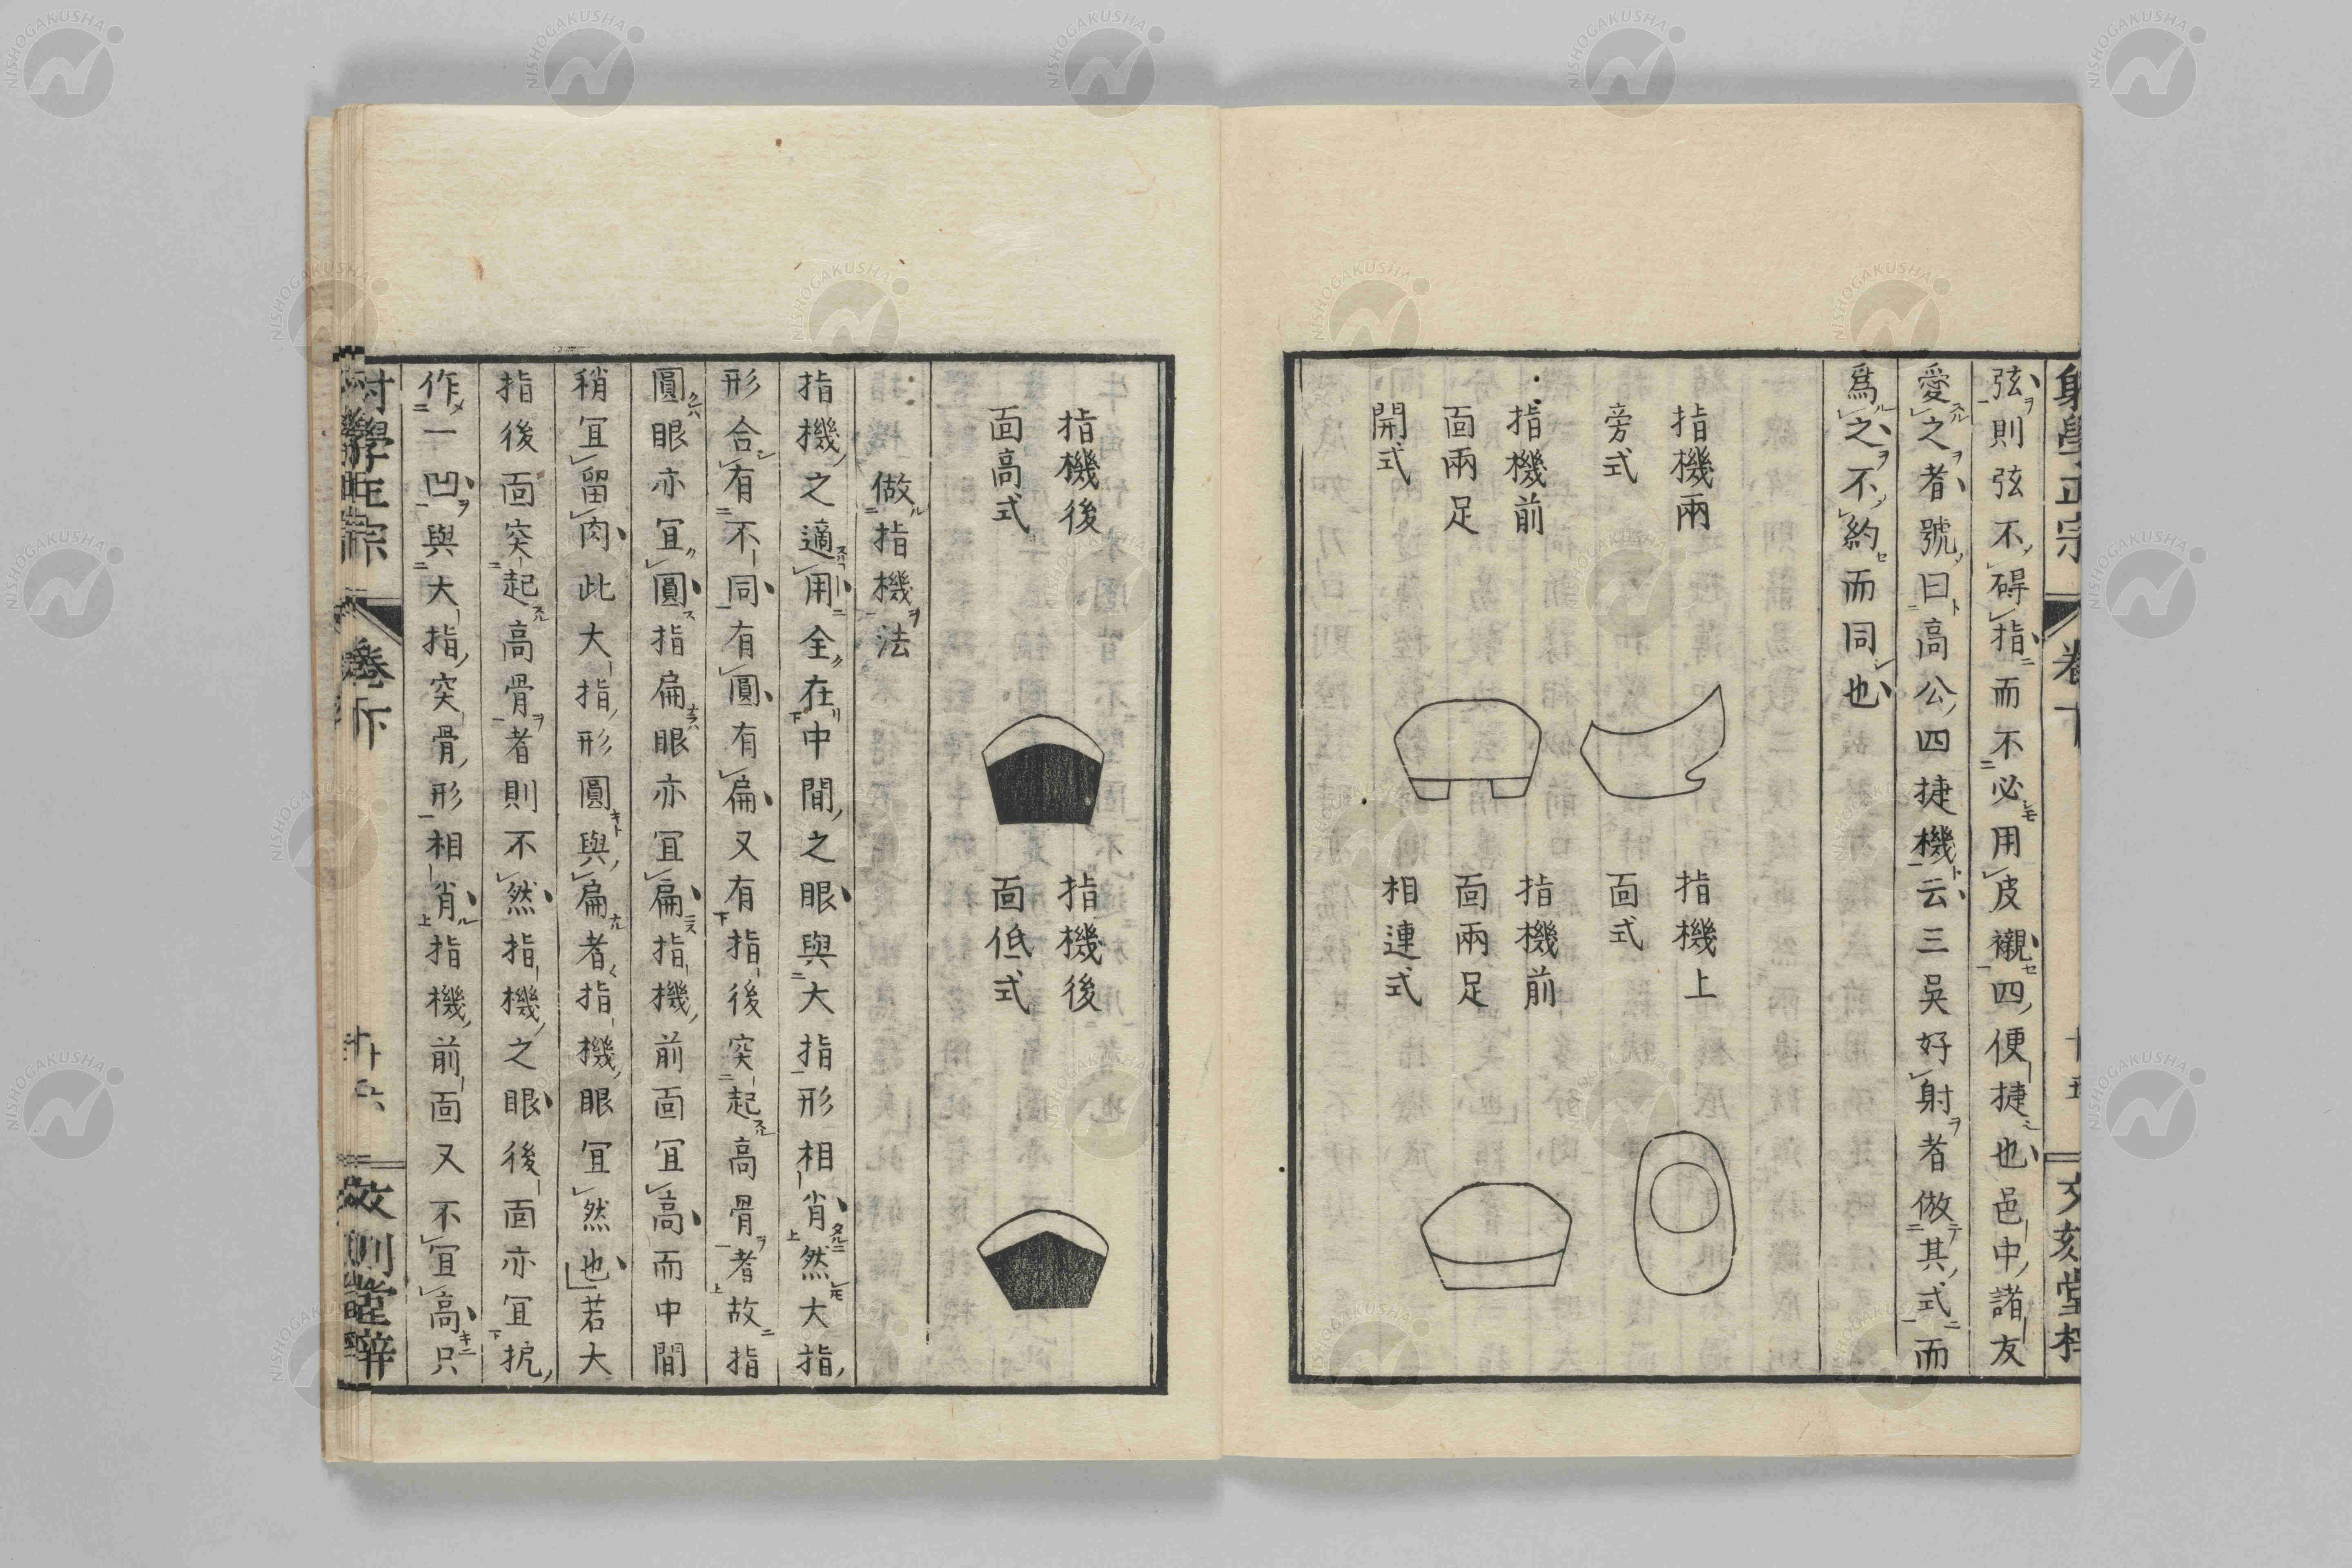 射學正宗 卷下 十五 文刻堂梓
弦則弦不碍指而不必用皮襯四便捷也邑中諸友
愛之者號曰高公四捷機云三吳好射者倣其式而
爲之不約而同也
指機兩
旁式
指機上
面式
指機前
面兩足
開式
指機前
面兩足
相連式
指機後
面高式
指機後
面低式
做指機法
指機之適用全在中間之眼與大指形相肖然大指
形合有不同有圓有扁又有指後突起高骨者故指
圓眼亦宜圓指扁眼亦宜扁指機前面宜高而中間
稍宜留肉此大指形圓與扁者指機眼宜然也若大
指後面突起高骨者則不然指機之眼後面亦宜挖
作一凹與大指突骨形相肖指機前面又不宜高只
射學正宗 卷下 十六
NISHOGAKUSHA